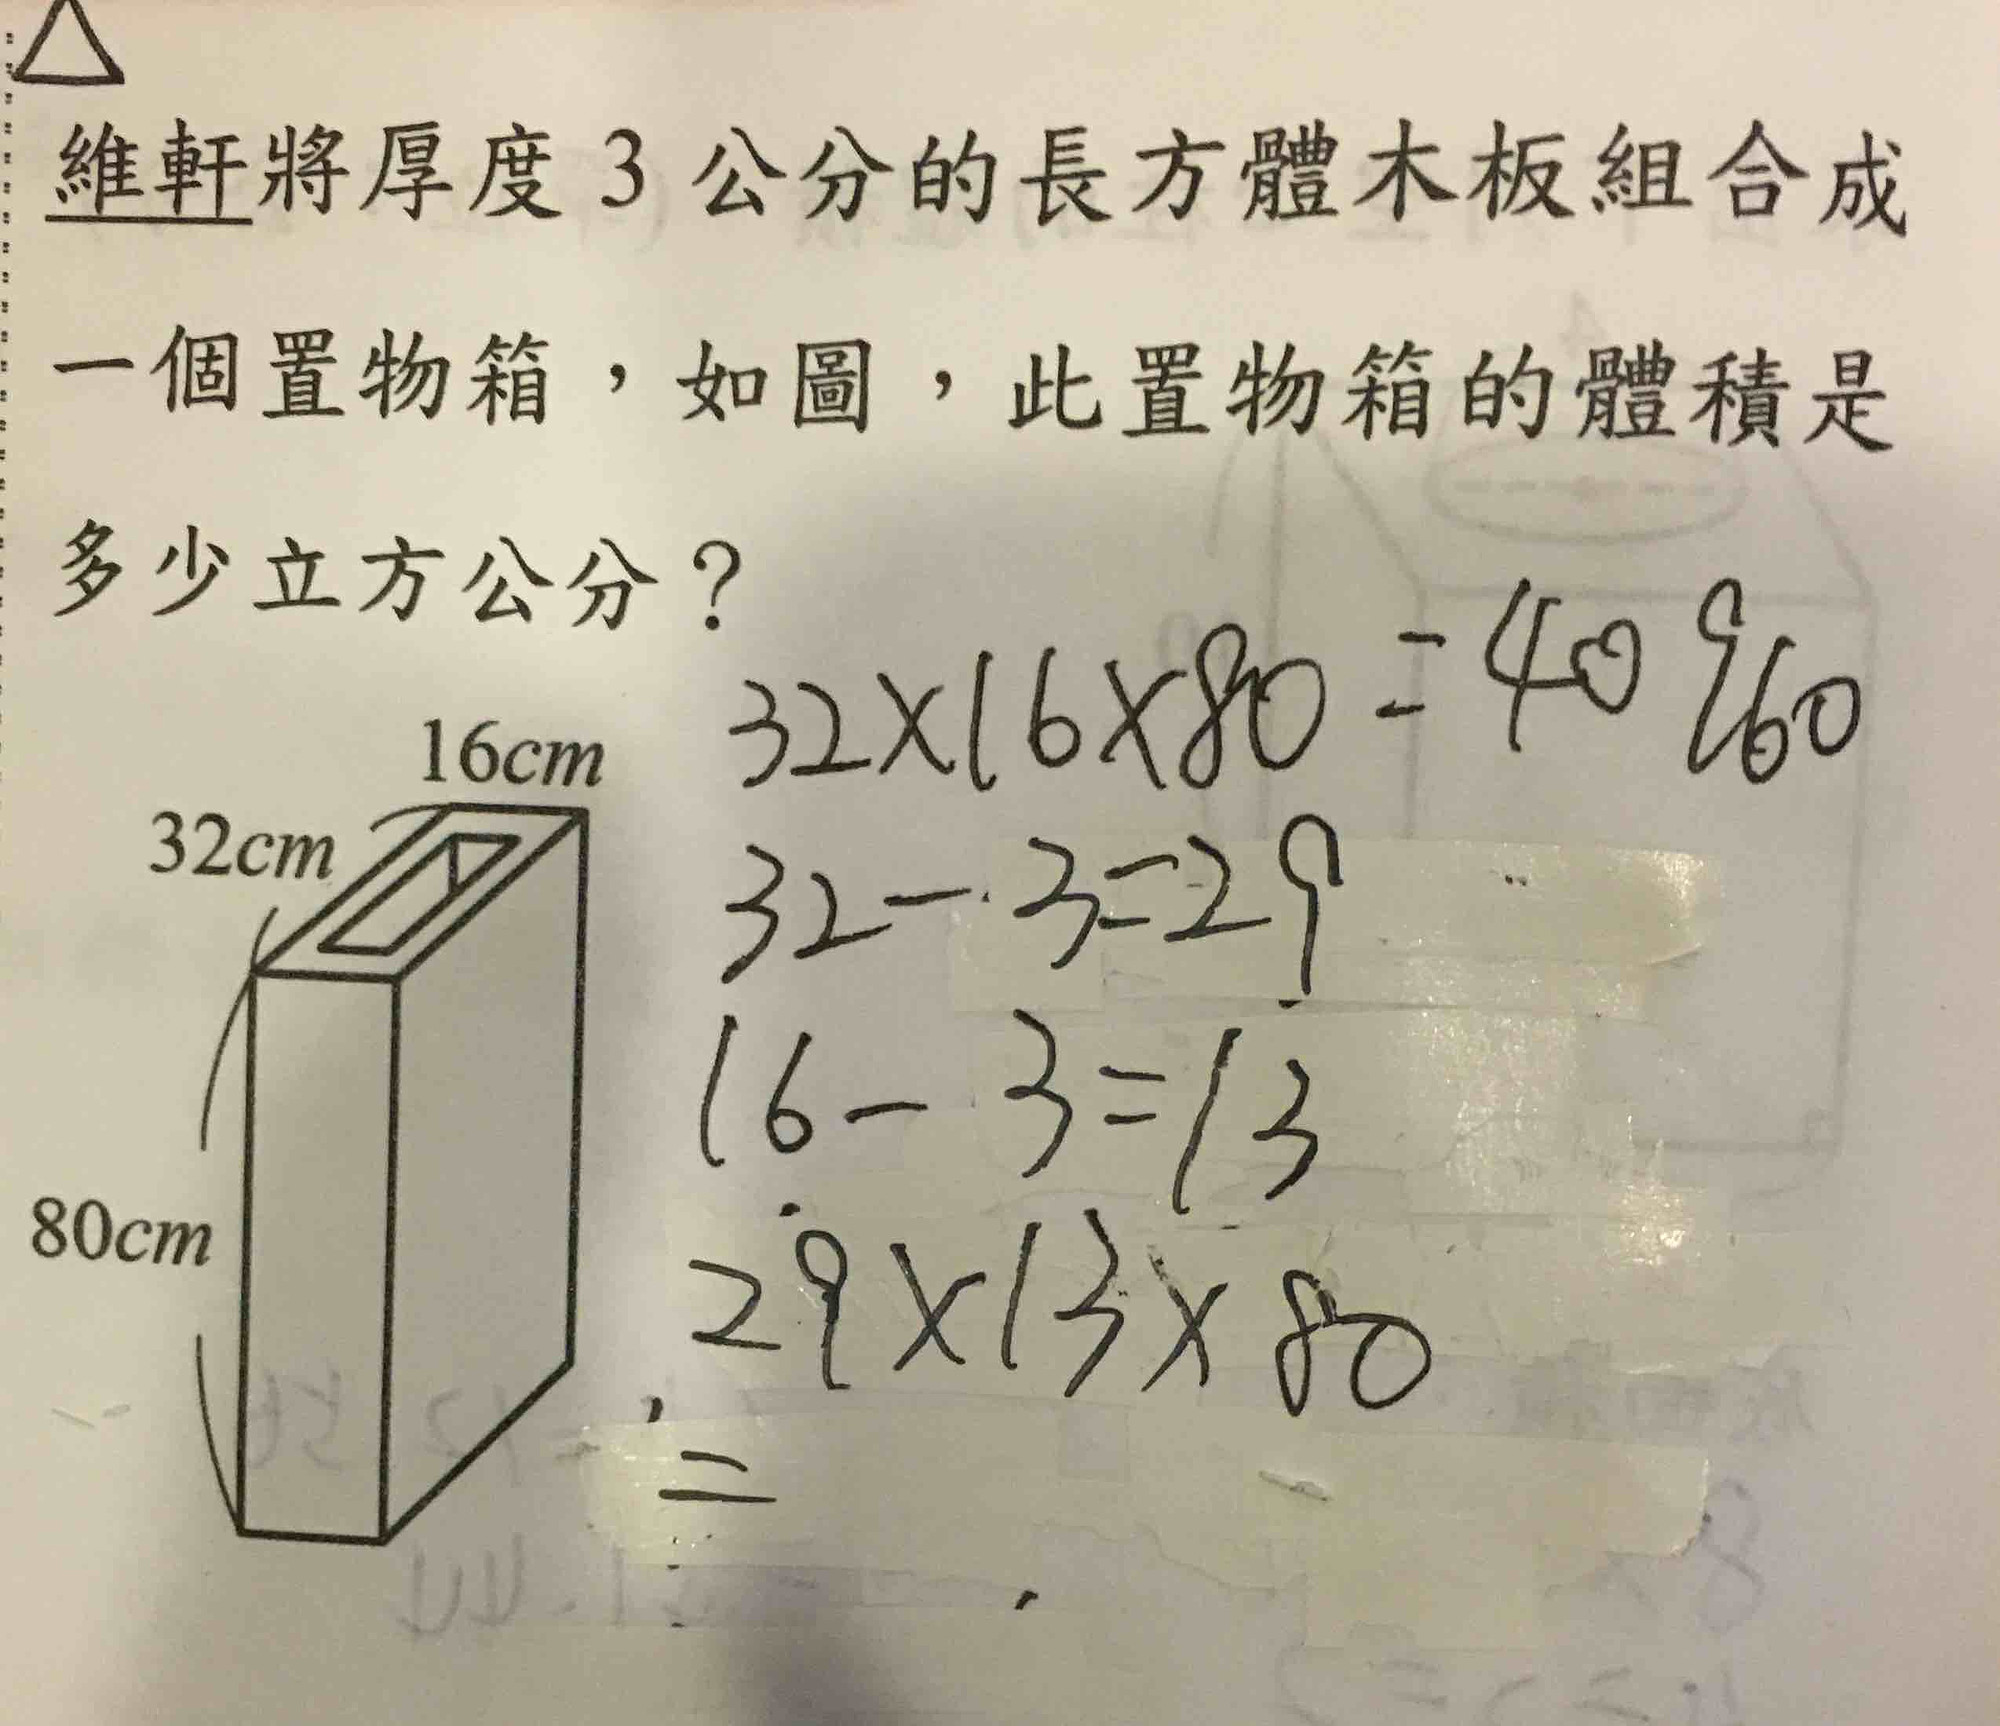 維軒將厚度3公分的長方體木板組合成
一個置物箱，如圖，此置物箱的體積是
多少立方公分？
32×16×80=40960
16cm
32cm
32-3=29
16-3=13
80cm
29×13×80
=